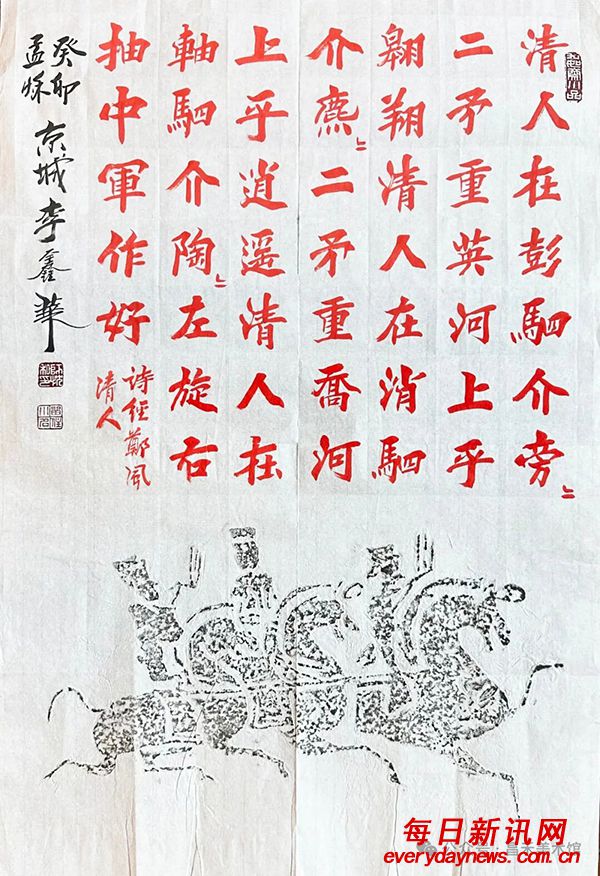 清人在彭駟介旁〻
二矛重英河上乎
翱翔清人在消駟
介麃〻二矛重喬河
上乎逍遥清人在
軸駟介陶〻左旋右
抽中軍作好
诗經鄭風
清人
癸卯
孟秌
京城李鑫華
每日新讯网
everydaynews.com.cn